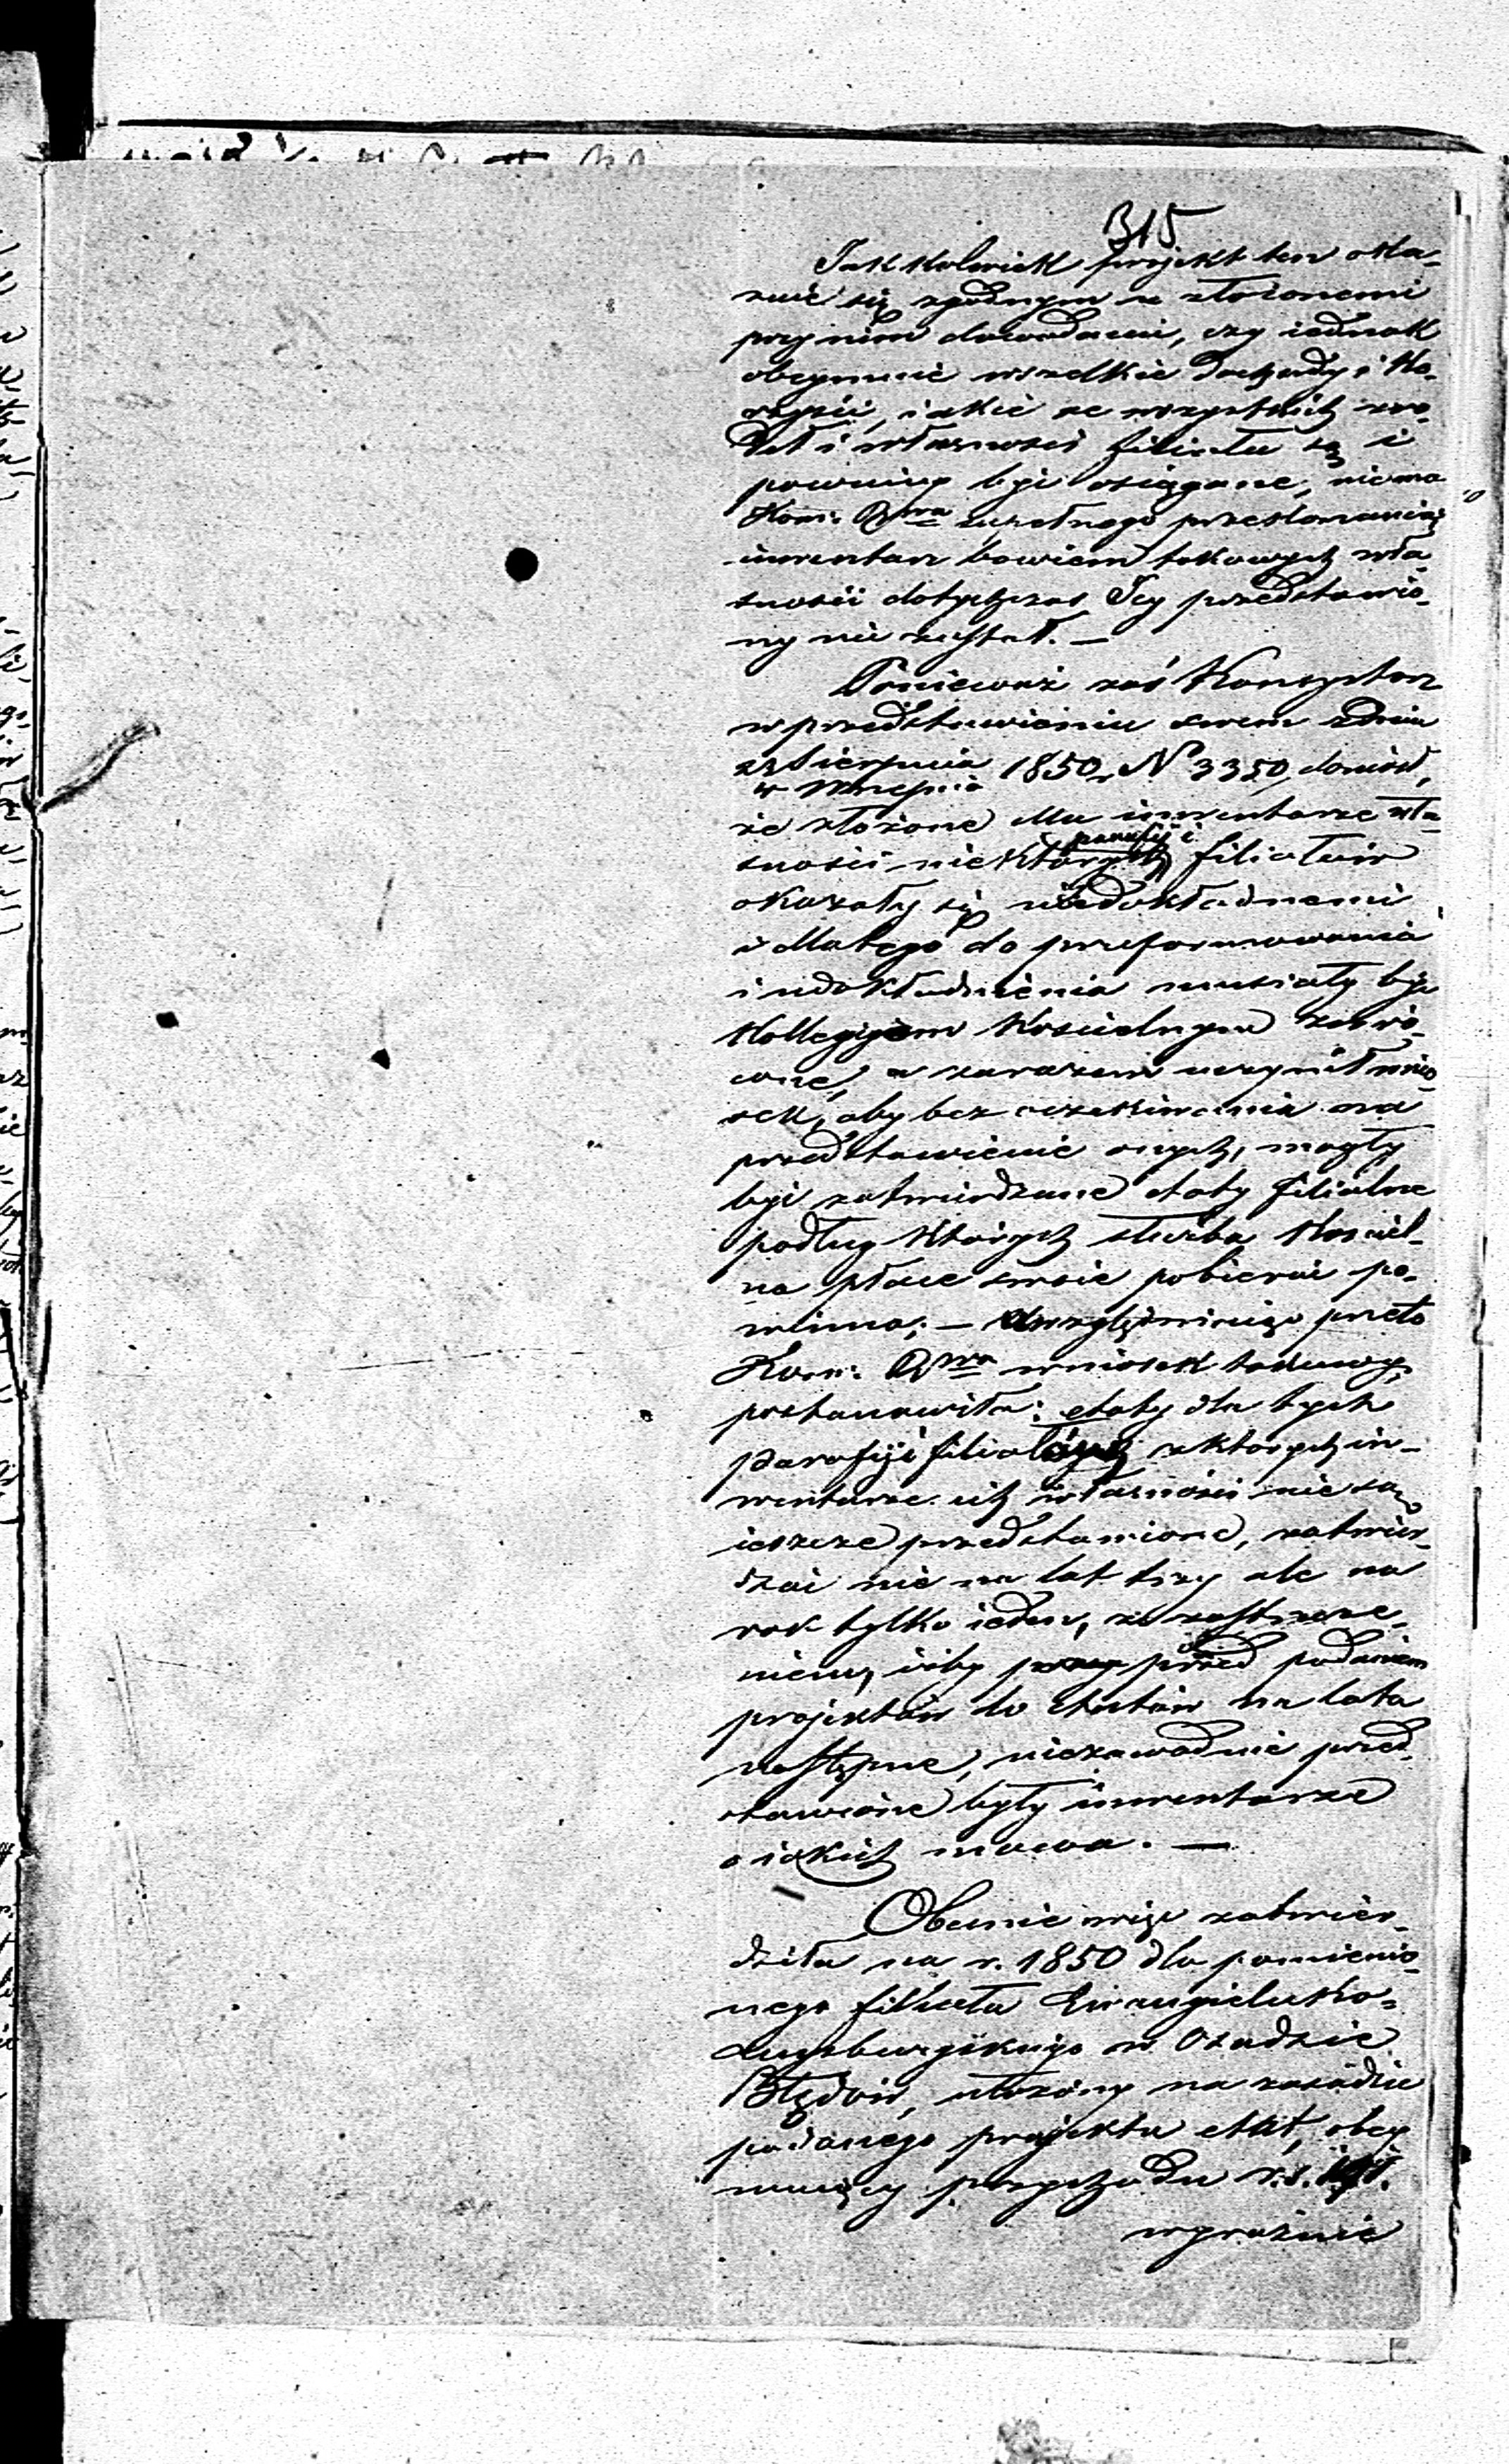 315
Jakkolwiek projekt ten oka-
zuie się zgodnym ze złożonemi
przy nim dowodami, czy iednak
obeymuie wszelkie dochody i ko-
rzyści, iakie ze wszystkich źró-
deł i własności filiału są i
powinny być osiągane, niema
Kom: Rwa zupełnego przekonania;
inwentarz bowiem takowych wła-
sności dotychczas Jey przedstawio-
ny nie został. —
Ponieważ zaś Konsystorz
w przedstawieniu swem z dnia
Sierpnia 1850 r. N 3350, doniósł,
w Wrześnio
że złożone Mu inwentarze wła-
parafij i
sności niektórych filiałów
okazały się niedokładnemi
i dlatego do przeformowania
i udokładnienia musiały być
Kollegijom Kościelnym zwró-
cone, a zarazem uczynił wnio-
sek, aby bez oczekiwania na
przedstawienie onych, mogły
być zatwierdzane etaty filialne
podług których służba Kościel-
na płace swoie pobierać po-
winna; — uwzględniając przeto
Kom: Rwa wniosek takowy,
postanowiła: etaty dla tych
Parafiji filialnych z których in-
wentarze ich własności nie są
ieszcze przedstawione, zatwier-
dzać nie na lat trzy ale na
rok tylko ieden, z zastrzeże-
niem, iżby przed podaniem
projektów do Etatów na lata
następne, niezawodnie przed-
stawione były inwentarze
o iakich mowa. —
Obecnie więc zatwier-
dziła na r. 1850 dla pomienio-
nego filiału Ewangielicko-
Augsburgskiego w Osadzie
Błędów, ułożony na zasadzie
podanego projektu etat, obey-
muiący przychodu r.s.
wyraźnie